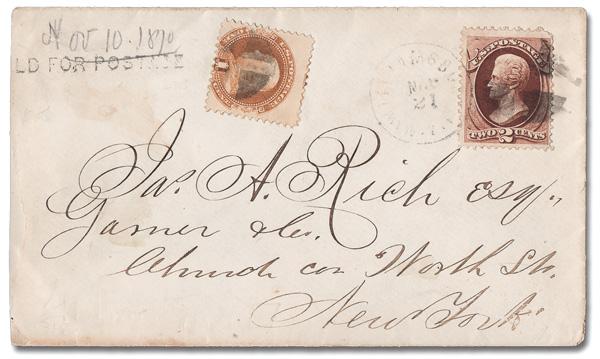 Nov 10. 1870
LD FOR POSTAGE
MAY
21
U.S. POSTAGE
TWO 2 CENTS
Jas. A. Rich Esq.,
Garner & Co.
Church cor Worth Sts.
New York